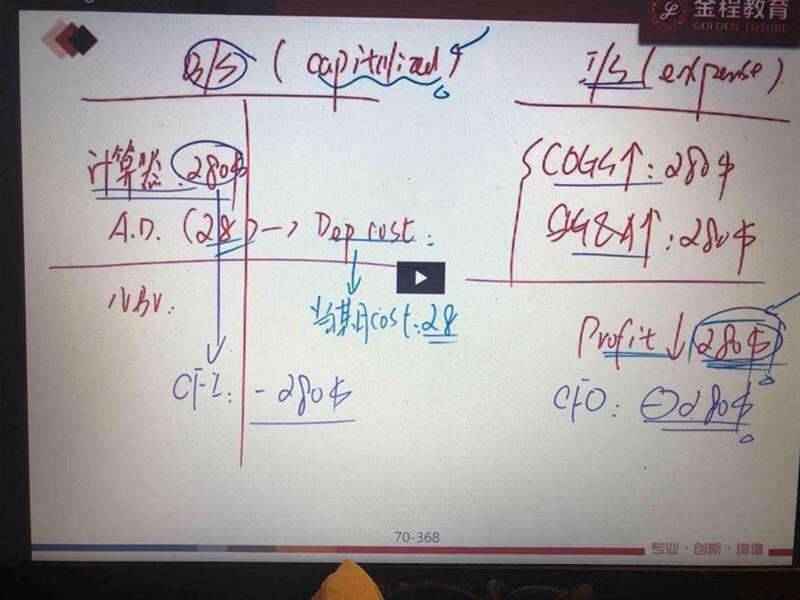 金程教育
GOLDEN FUTURE
B/S (capitalized)
计算器:280$
A.D. (28) → Dep cost:
NBV.
当期cost:28
CFI: -280$
I/S (expense)
COGS↑:280$
SG&A↑:280$
Profit↓ 280$
CFO: -280$
70-368
专业·创新·增值